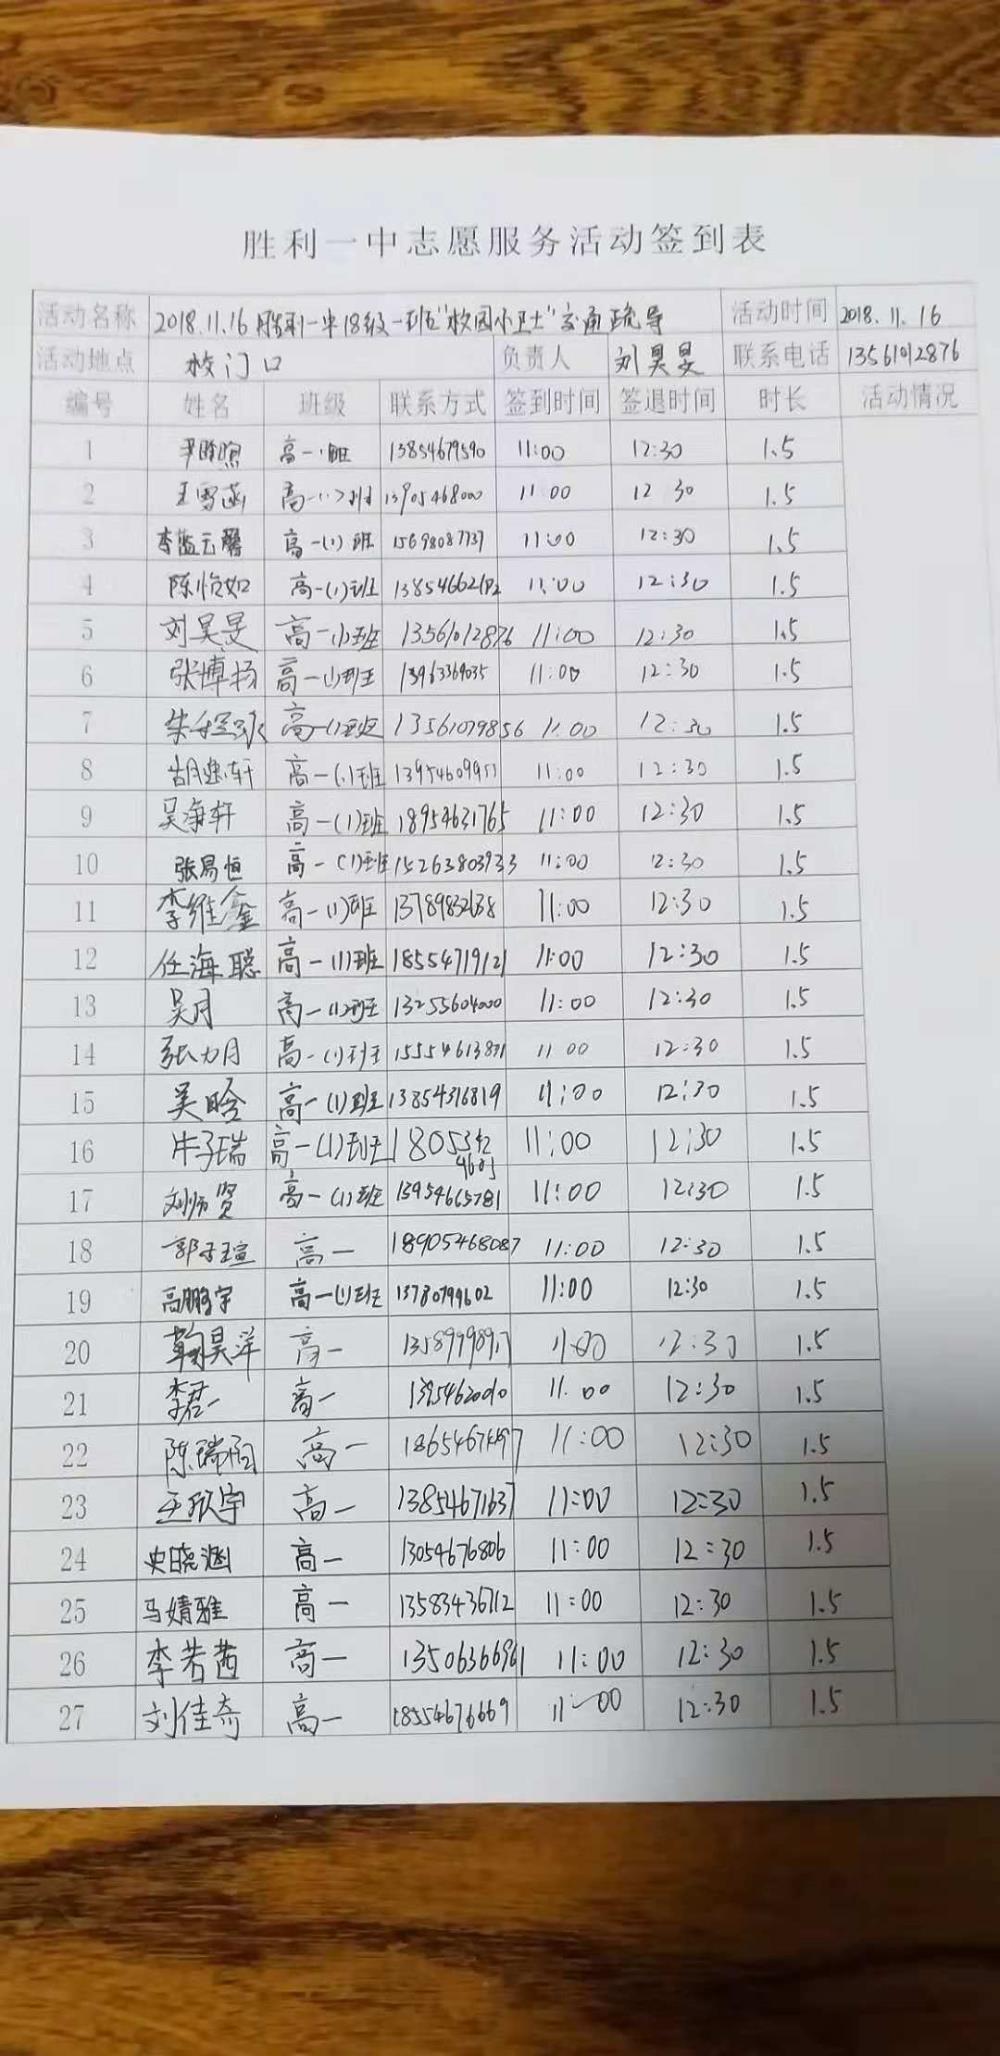 胜利一中志愿服务活动签到表
活动名称 2018.11.16胜利一中18级一班"校园小卫士"交通疏导 活动时间 2018.11.16
活动地点 校门口 负责人 刘昊旻 联系电话 13561012876
编号 姓名 班级 联系方式 签到时间 签退时间 时长 活动情况
1 高一 班 13854679590 11:00 12:30 1.5
2 王雪菡 高一(1)班 13905468000 11:00 12:30 1.5
3 李蓝云馨 高一(1)班 15698087737 11:00 12:30 1.5
4 陈怡如 高一(1)班 11:00 12:30 1.5
5 刘昊旻 高一(1)班 13561012876 11:00 12:30 1.5
6 张博扬 高一(1)班 11:00 12:30 1.5
7 高一(1)班 13561079856 11:00 12:30 1.5
8 高一(1)班 11:00 12:30 1.5
9 吴海轩 高一(1)班 18954631765 11:00 12:30 1.5
10 张易恒 高一(1)班 15263803933 11:00 12:30 1.5
11 李维鑫 高一(1)班 11:00 12:30 1.5
12 任海聪 高一(1)班 18554719121 11:00 12:30 1.5
13 吴月 高一(1)班 13255604000 11:00 12:30 1.5
14 张力月 高一(1)班 15554613871 11:00 12:30 1.5
15 吴晗 高一(1)班 13854316819 11:00 12:30 1.5
16 牛子瑞 高一(1)班 11:00 12:30 1.5
17 刘师贤 高一(1)班 13954665781 11:00 12:30 1.5
18 郭子瑄 高一 18905468087 11:00 12:30 1.5
19 高鹏宇 高一(1)班 13780799602 11:00 12:30 1.5
20 鞠昊洋 高一 11:00 12:30 1.5
21 李君一 高一 11:00 12:30 1.5
22 高一 11:00 12:30 1.5
23 王欣宇 高一 13854671637 11:00 12:30 1.5
24 史晓涵 高一 13054676806 11:00 12:30 1.5
25 马婧雅 高一 13583436712 11:00 12:30 1.5
26 李若茜 高一 13506366961 11:00 12:30 1.5
27 刘佳奇 高一 18554676669 11:00 12:30 1.5